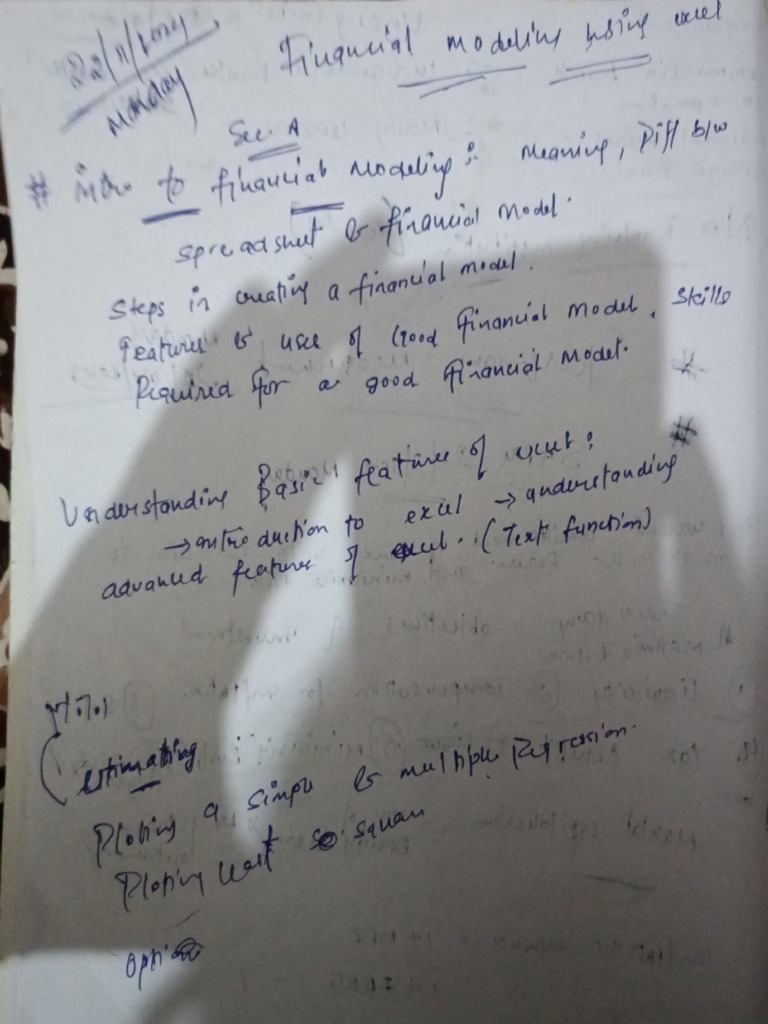 Financial modeling using excel
Monday
Sec A
# intro to financial Modeling: Meaning, Diff b/w
spreadsheet & financial model.
Steps in creating a financial model.
Features & uses of Good financial Model, Skills
Required for a good financial Model.
Understanding Basic features of excel: #
→ introduction to excel → understanding
advanced features of excel. (Text function)
estimating
Ploting a simple & multiple Regression.
Ploting least square